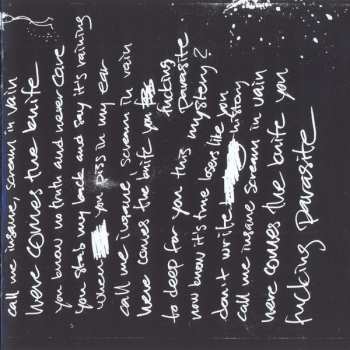 call me insane, scream in vain
here comes the knife
you know no truth and never care
you stab my back and say it's raining
when you piss in my ear
call me insane scream in vain
here comes the knife you fucking
parasite
to deep for you this mystery?
now know it's time losers like you
don't write history
call me insane scream in vain
here comes the knife you
fucking parasite